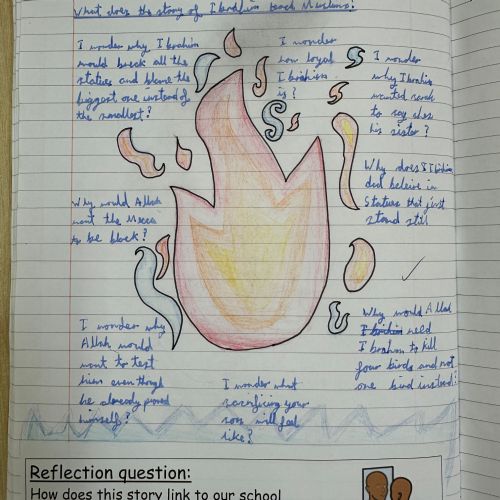 What does the story of Ibrahim teach Muslims?
I wonder why Ibrahim
would break all the
statues and blame the
biggest one instead of
the smallest?
I wonder
how loyal
Ibrahim
is?
I wonder
why Ibrahim
wanted sarah
to say shes
his sister?
Why does Ibrahim
did beleive in
Statues that just
stand still
Why would Allah
want the Mecca
to be black?
I wonder why
Allah would
want to test
him even though
he already proved
himself?
I wonder what
sacrificing your
son will feel
like?
Why would Allah
Ibrahim need
Ibrahim to kill
four birds and not
one bird instead?
Reflection question:
How does this story link to our school